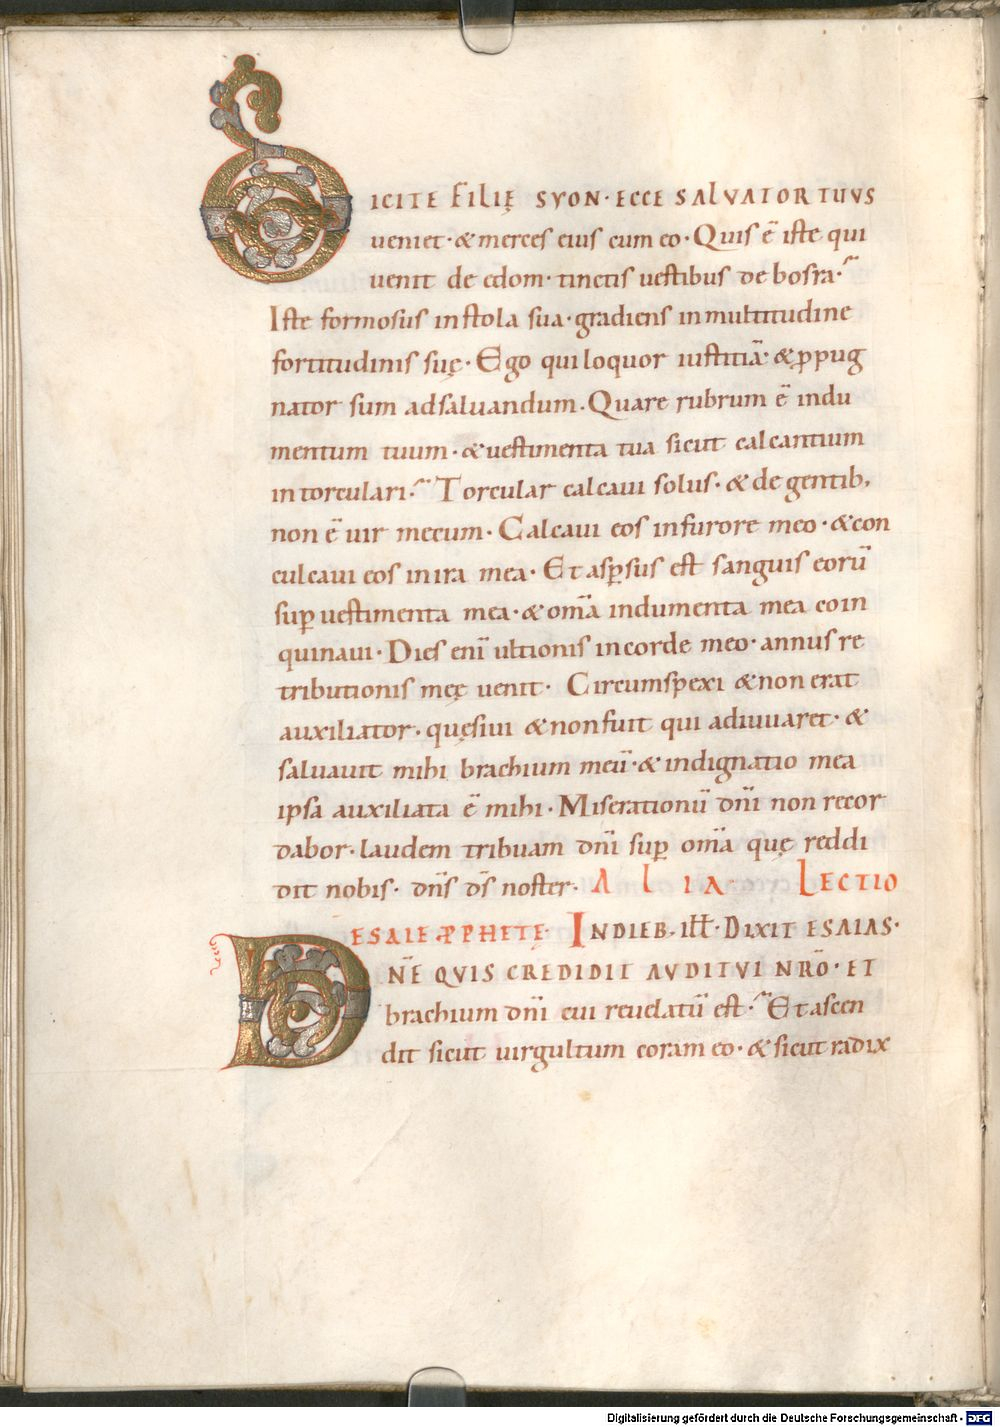 DICITE FILIĘ SYON· ECCE SALVATOR TUUS
ueniet· & merces eius cum eo· Quis ē iste qui
uenit de edom· tinctis uestibus de bosra·
Iste formosus in stola sua· gradiens in multitudine
fortitudinis suę· Ego qui loquor iustitiā· & ꝓpug
nator sum ad saluandum· Quare rubrum ē indu
mentum tuum· & uestimenta tua sicut calcantium
in torculari· Torcular calcaui solus· & de gentib,
non ē uir mecum· Calcaui eos in furore meo· & con
culcaui eos in ira mea· Et aspsus est sanguis eorū
sup uestimenta mea· & omā indumenta mea coin
quinaui· Dies enī ultionis in corde meo· annus re
tributionis meę uenit· Circumspexi & non erat
auxiliator· quęsiui & non fuit qui adiuuaret· &
saluauit mihi brachium meū· & indignatio mea
ipsa auxiliata ē mihi· Miserationū dnī non recor
dabor· laudem tribuam dnī sup omā quę reddi
dit nobis· dns ds noster· ALIA· LECTIO
ESAIE PPHETĘ· IN DIEB· ILL· DIXIT ESAIAS·
DNE QUIS CREDIDIT AUDITUI NRO· ET
brachium dnī cui reuelatū est· Et ascen
dit sicut uirgultum coram eo· & sicut radix
Digitalisierung gefördert durch die Deutsche Forschungsgemeinschaft - DFG